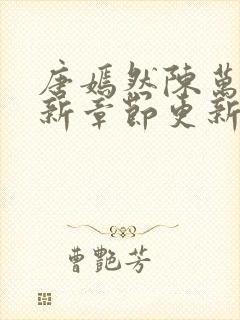 唐嫣然陳萬
新章節更新
曹艷芳